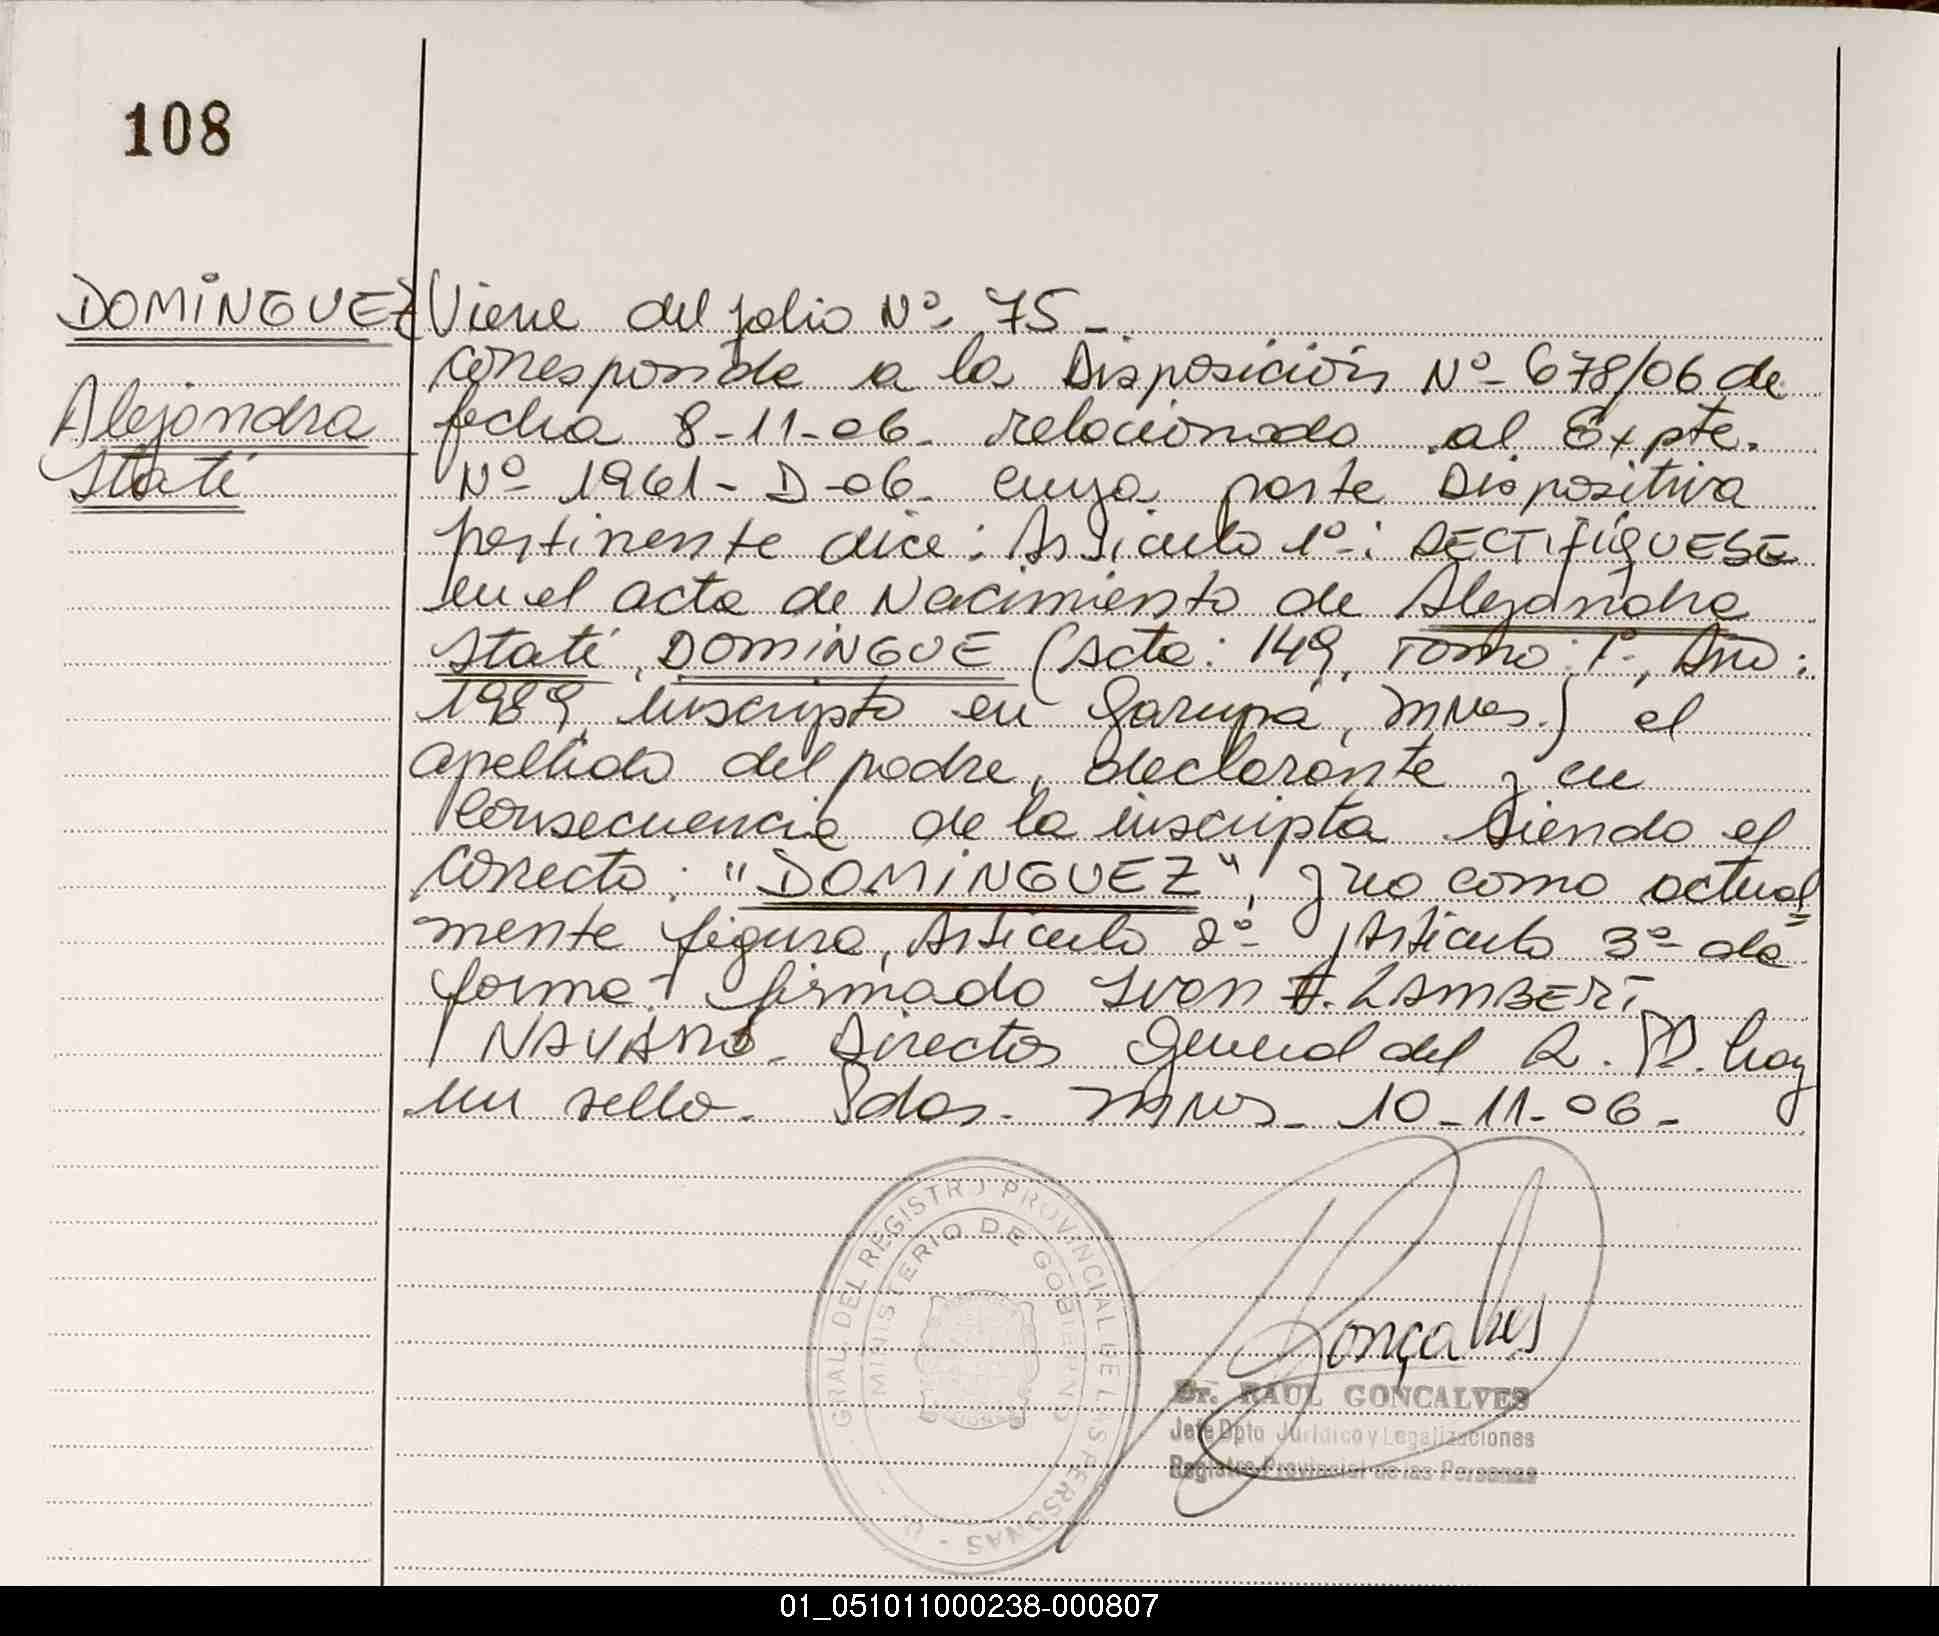 108
DOMINGUEZ
Alejandra
Statí
Viene del folio Nº 75 -
corresponde a la Disposición Nº 678/06 de
fecha 8-11-06. relacionado al Expte.
Nº 1961- D-06. cuya parte Dispositiva
pertinente dice: Artículo 1º: RECTIFÍQUESE
en el acta de Nacimiento de Alejandra
Statí, DOMINGUE (Acta: 149, Tomo: 1º, Año:
1989, inscripto en Garupá, Mnes.) el
apellido del padre, declarante y en
consecuencia de la inscripta siendo el
correcto: "DOMINGUEZ", y no como actual
mente figura, Artículo 2º Artículo 3º de
forma firmado Ivon A. LAMBERT
NAVARO. Director General del R. P. hay
un sello. Pdas. Mnes. 10-11-06-
GRAL. DEL REGISTRO PROVINCIAL DE LAS PERSONAS
MINISTERIO DE GOBIERNO
Gonçalves
Dr. RAUL GONCALVES
Jefe Dpto Jurídico y Legalizaciones
Registro Provincial de las Personas
01_051011000238-000807